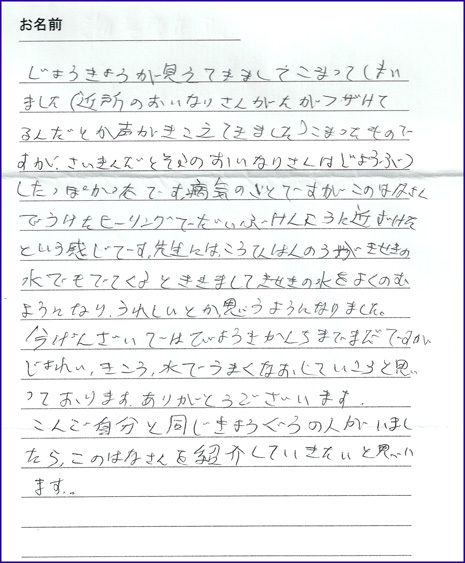 お名前
じょうきょうが見えてきましてこまってしまい
ました(近所のおいなりさんがたがフザけて
るんだとか声がきこえてきました)こまったもので
すが、さいきんだとそのおいなりさんはじょうぶつ
したっぽかったです。病気のことですがこのはなさん
でうけたヒーリングでだいぶけんこうに近ずけた
という感じです。先生には、こうひはんのうがきせきの
水でもでてくるとききましてきせきの水をよくのむ
ようになり、うれしいとか思うようになりました。
今げんざいではびょうきがしらまでまだですが
じょれい、きこう、水でうまくなおしていこうと思
っております。ありがとうございます。
こんご自分と同じきょうぐうの人がいまし
たら、このはなさんを紹介していきたいと思い
ます。